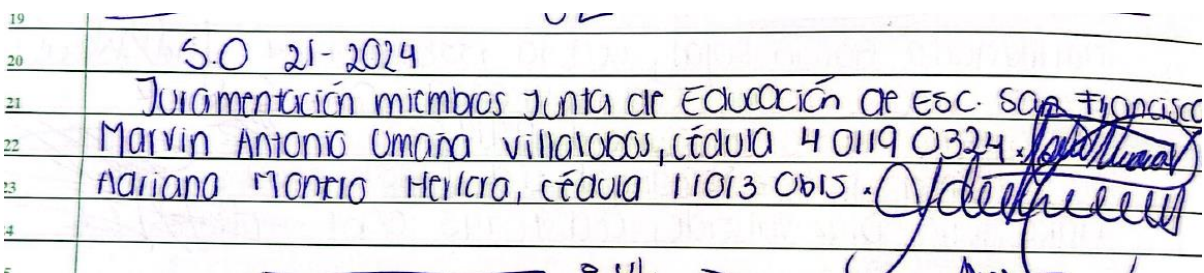 19
20 S.O 21-2024
21 Juramentación miembros Junta de Educación de Esc. San Francisco
22 Marvin Antonio Umaña Villalobos, cédula 4 0119 0324.
23 Adriana Montero Herrera, cédula 1 1013 0615.